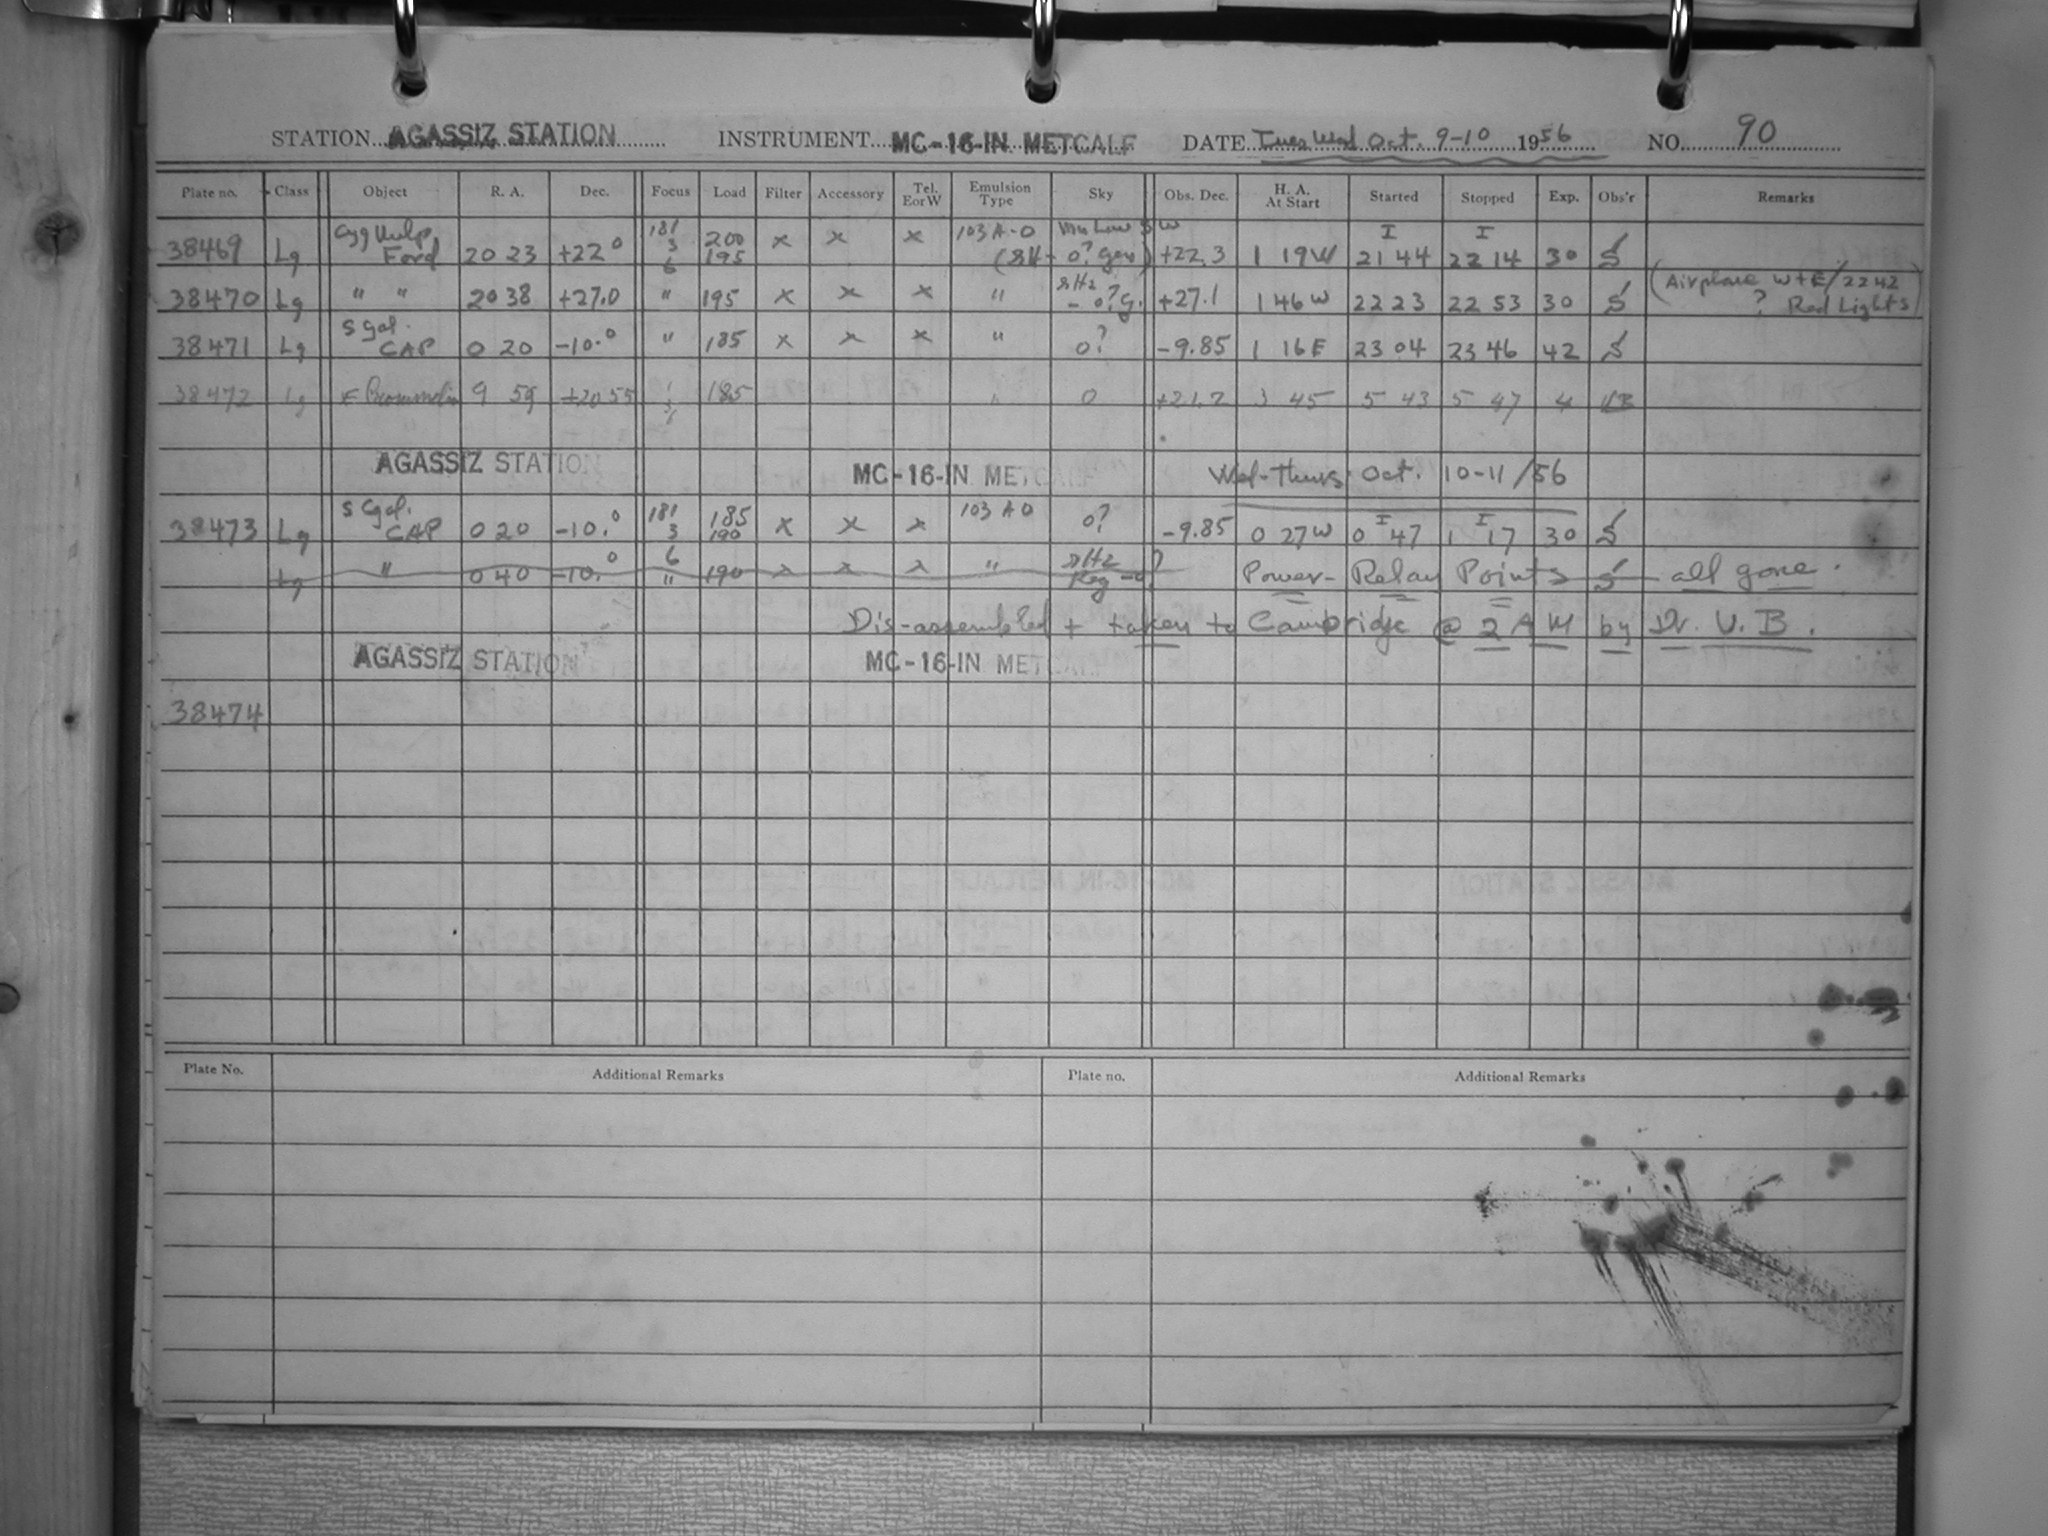 STATION AGASSIZ STATION INSTRUMENT MC-16-IN METCALF DATE Tues Wed Oct. 9-10 1956 NO. 90
Plate no. Class Object R. A. Dec. Focus Load Filter Accessory Tel. E or W Emulsion Type Sky Obs. Dec. H. A. At Start Started Stopped Exp. Obs'r Remarks
38469 Lg Cyg Vulp. Ford 20 23 +22° 181 3 6 200 195 x x x 103 A-O +22.3 1 19W I 21 44 I 22 14 30 S
38470 Lg " " 20 38 +27.0 " 195 x x x " +27.1 1 46 W 22 23 22 53 30 S (Airplane W+E/2242 ? Red Lights)
38471 Lg S Gal. CAP 0 20 -10.° " 185 x x x " 0? -9.85 1 16E 23 04 23 46 42 S
38472 Lg 9 59 +20 55 185 " 0 +21.2 3 45 5 43 5 47 4 VB
AGASSIZ STATION MC-16-IN METCALF Wed-Thurs. Oct. 10-11/56
38473 Lg S Gal. CAP 0 20 -10.° 181 3 6 185 190 x x x 103 A O 0? -9.85 0 27W I 0 47 I 1 17 30 S
Lg " 0 40 -10.° " 190 x x x " Power-Relay Points S all gone.
Dis-assembled + taken to Cambridge @ 2 AM by Dr. V. B.
AGASSIZ STATION MC-16-IN METCALF
38474
Plate No. Additional Remarks Plate no. Additional Remarks